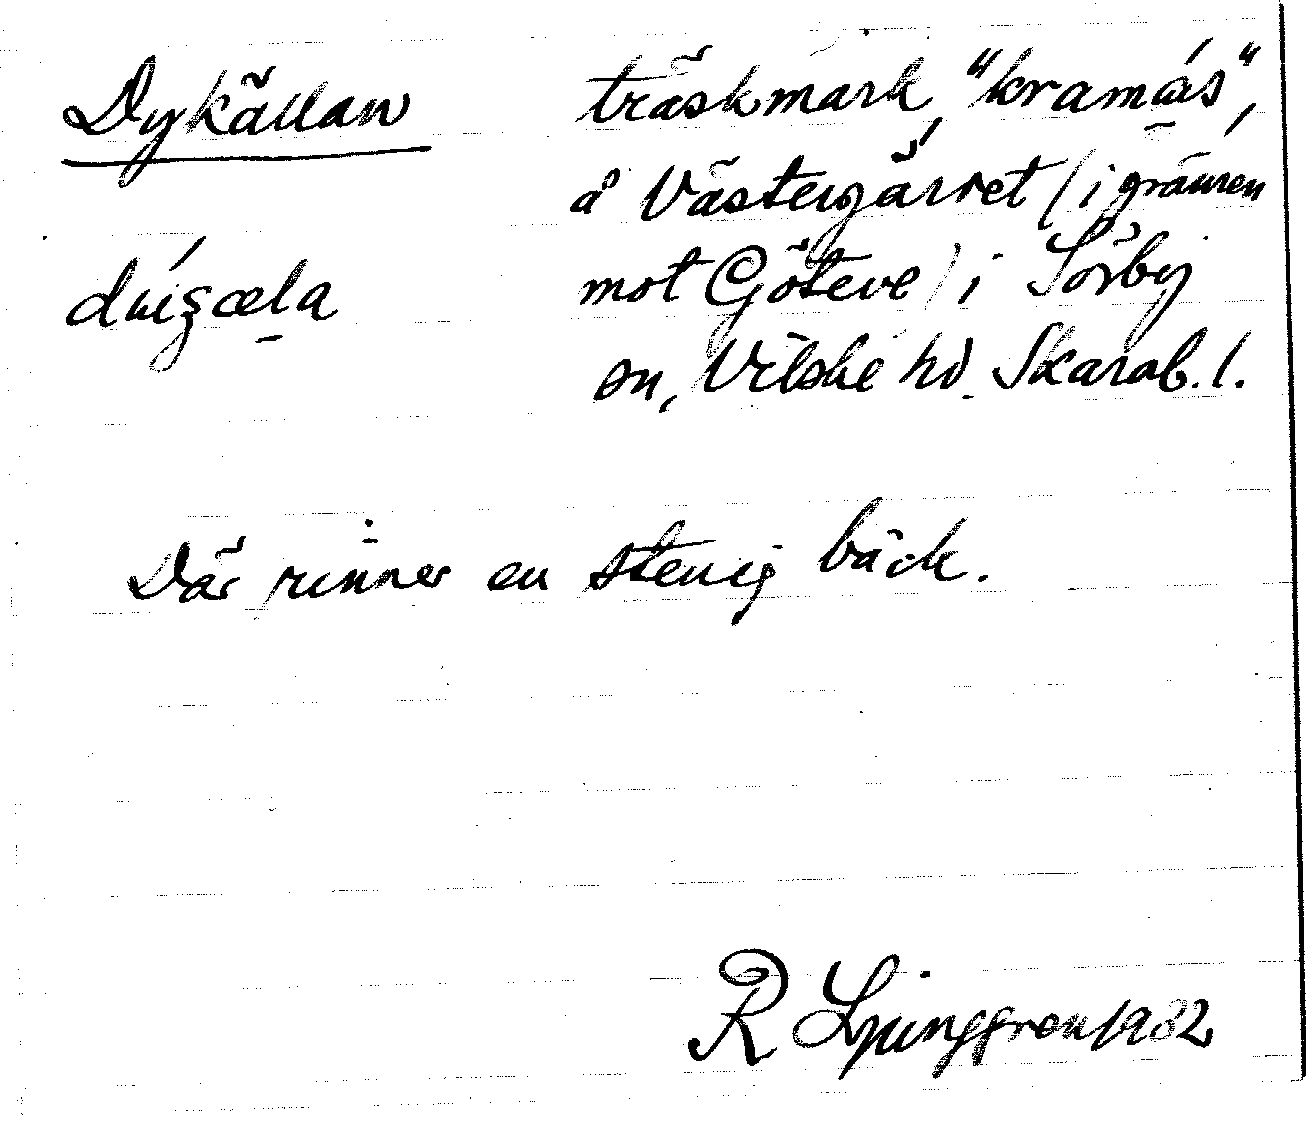 Dykällan
träskmark, "kramás",
å Västergärdet (i gränsen
dýiʒæla
mot Göteve) i Sörby
sn, Vilske hd. Skarab. l.
Där rinner en stenig bäck.
R Ljunggren 1932